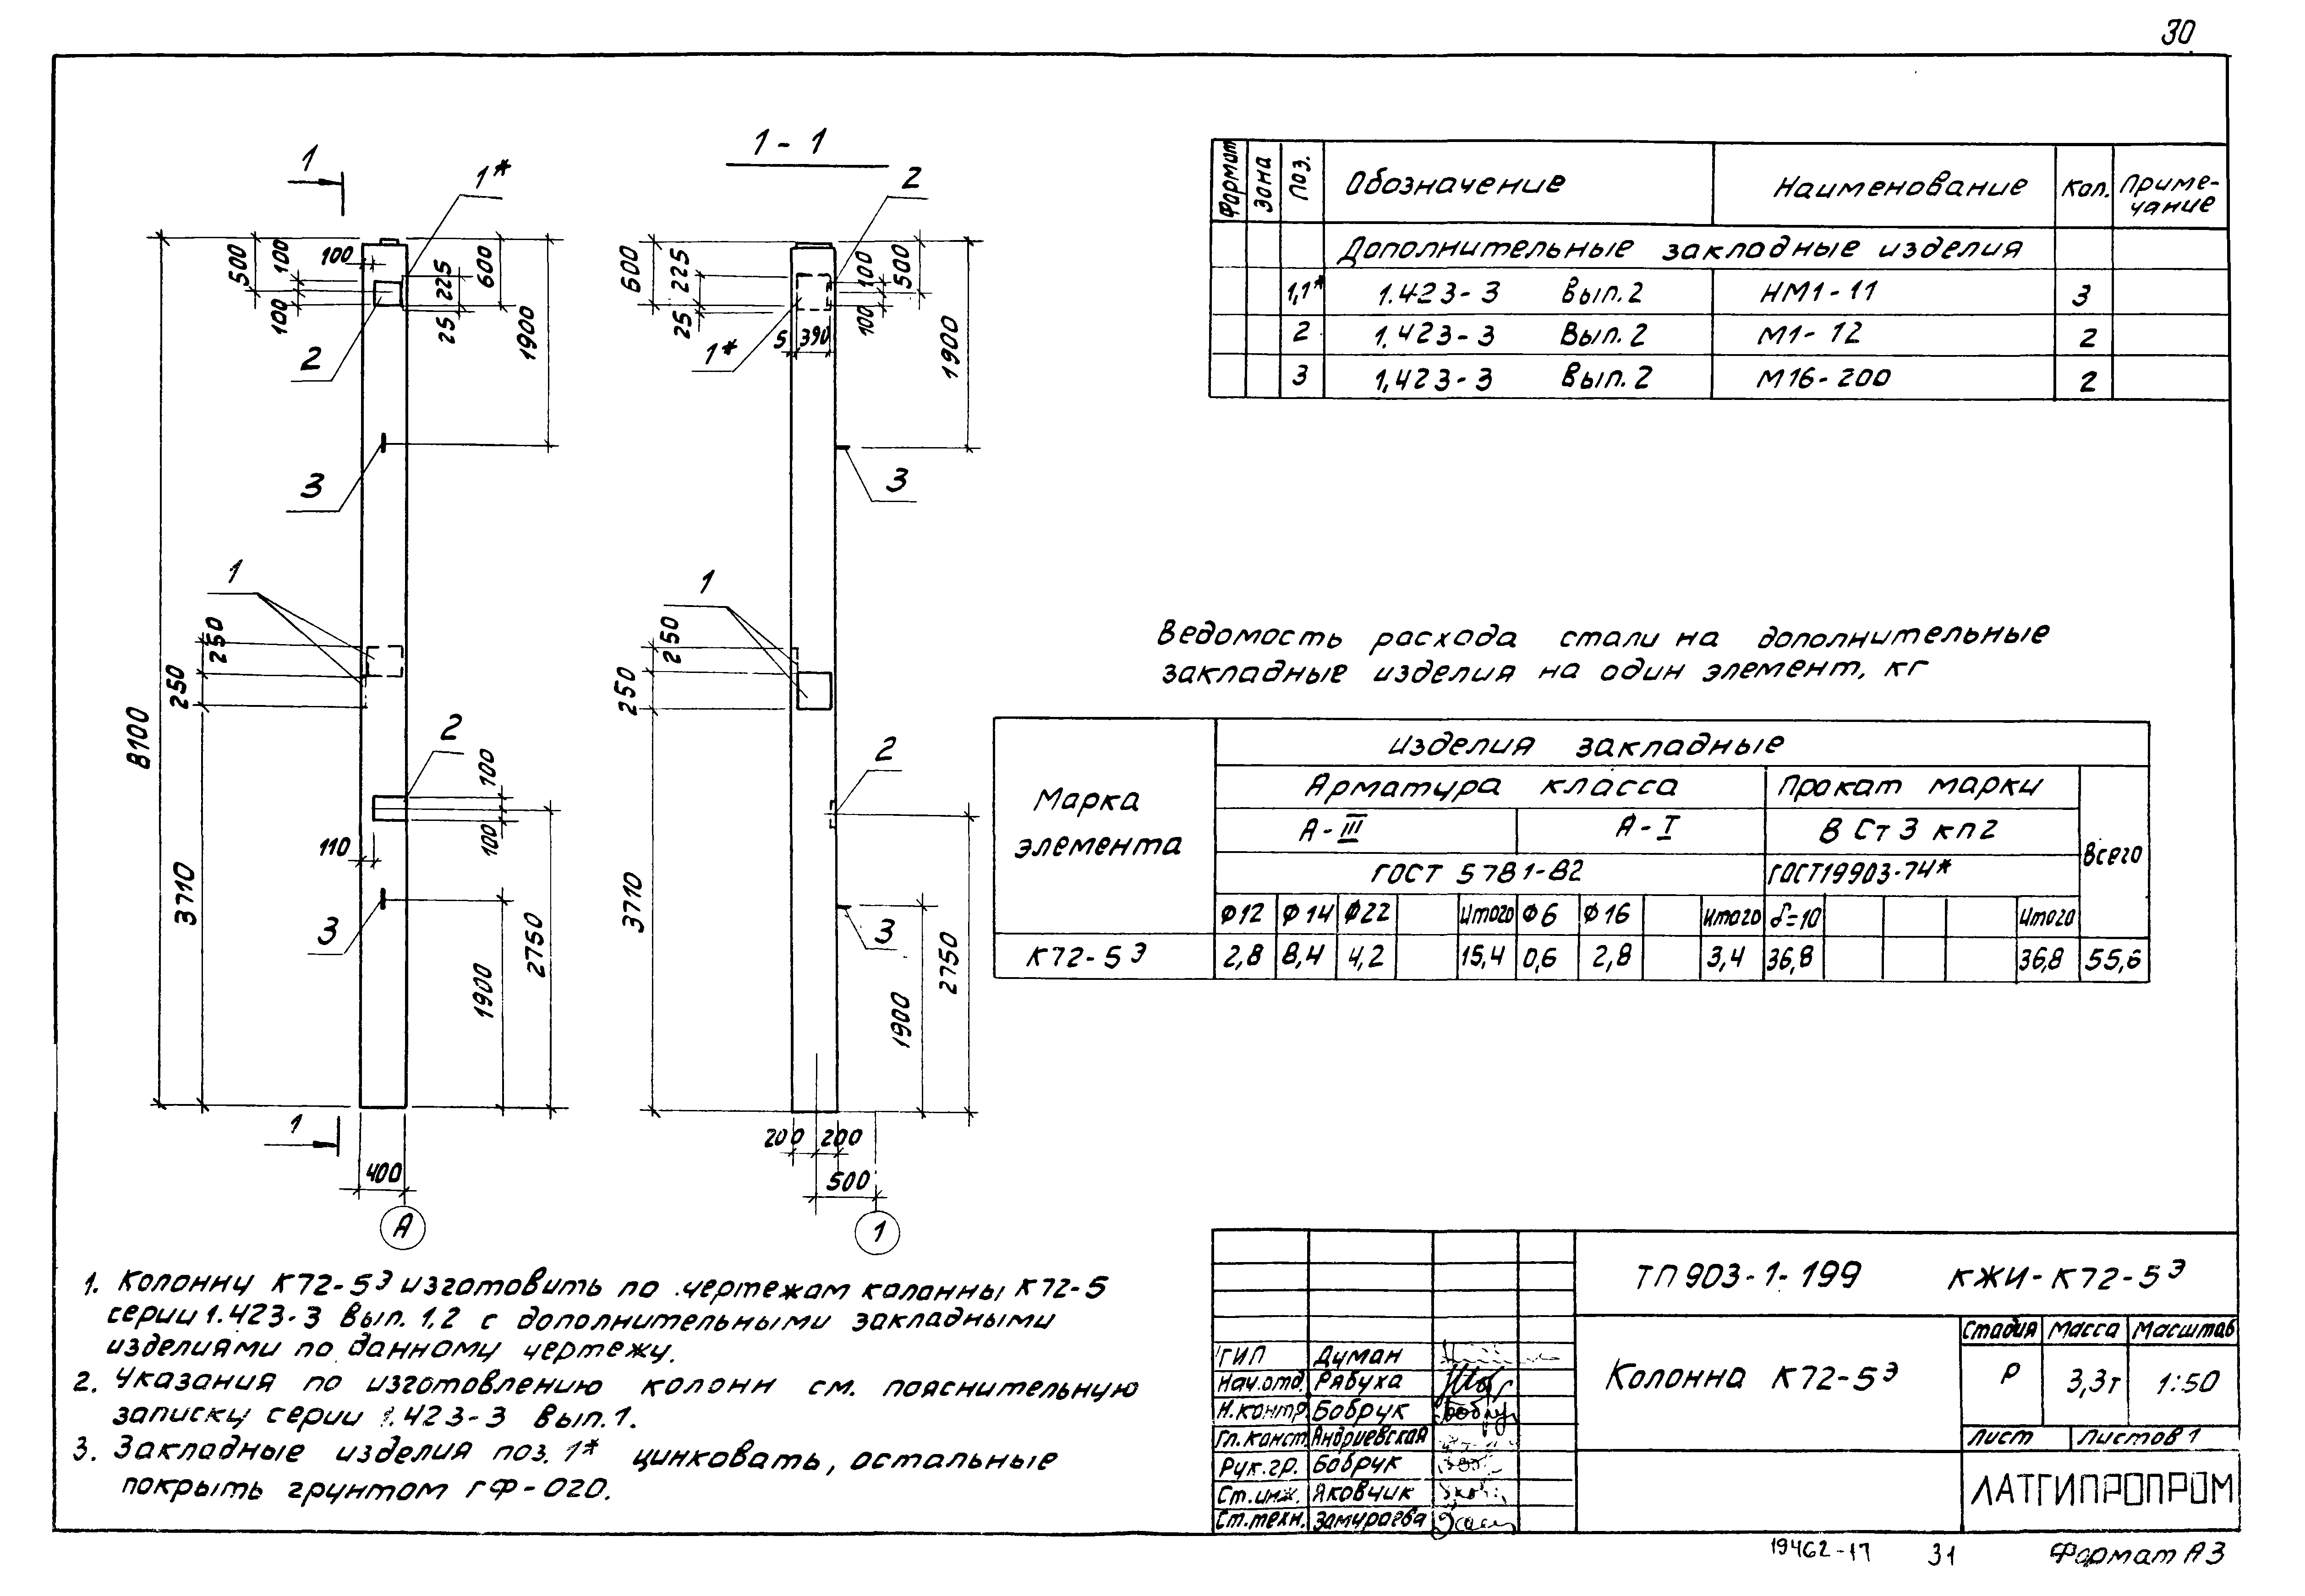 30
1
1*
500
100
100
100
225
25
600
1900
2
3
1
250
250
8100
3710
2
100
100
110
3
1900
2750
1
400
А
1-1
2
600
225
25
100
500
100
1*
5
390
1900
3
1
250
250
2
3710
3
1900
2750
200
200
500
1
Формат
Зона
Поз.
Обозначение
Наименование
Кол.
Приме-
чание
Дополнительные закладные изделия
1,1* 1.423-3 Вып.2 НМ1-11 3
2 1.423-3 Вып.2 М1-12 2
3 1.423-3 Вып.2 М16-200 2
Ведомость расхода стали на дополнительные
закладные изделия на один элемент, кг
Марка
элемента
Изделия закладные
Арматура класса
Прокат марки
А-III
А-I
В Ст 3 кп2
Всего
ГОСТ 5781-82
ГОСТ19903-74*
Ф12 Ф14 Ф22 Итого Ф6 Ф16 Итого δ=10 Итого
К72-5Э 2,8 8,4 4,2 15,4 0,6 2,8 3,4 36,8 36,8 55,6
1. Колонну К72-5Э изготовить по чертежам колонны К72-5
серии 1.423-3 Вып. 1,2 с дополнительными закладными
изделиями по данному чертежу.
2. Указания по изготовлению колонн см. пояснительную
записку серии 1.423-3 Вып.1.
3. Закладные изделия поз. 1* цинковать, остальные
покрыть грунтом ГФ-020.
ТП 903-1-199 КЖИ-К72-5Э
Колонна К72-5Э
Стадия Масса Масштаб
Р 3,3т 1:50
Лист Листов 1
ЛАТГИПРОПРОМ
ГИП Думан
Нач.отд. Рябуха
Н.контр. Бобрук
Гл.конст. Андриевская
Рук.гр. Бобрук
Ст.инж. Яковчик
Ст.техн. Замураева
19462-17 31 Формат А3